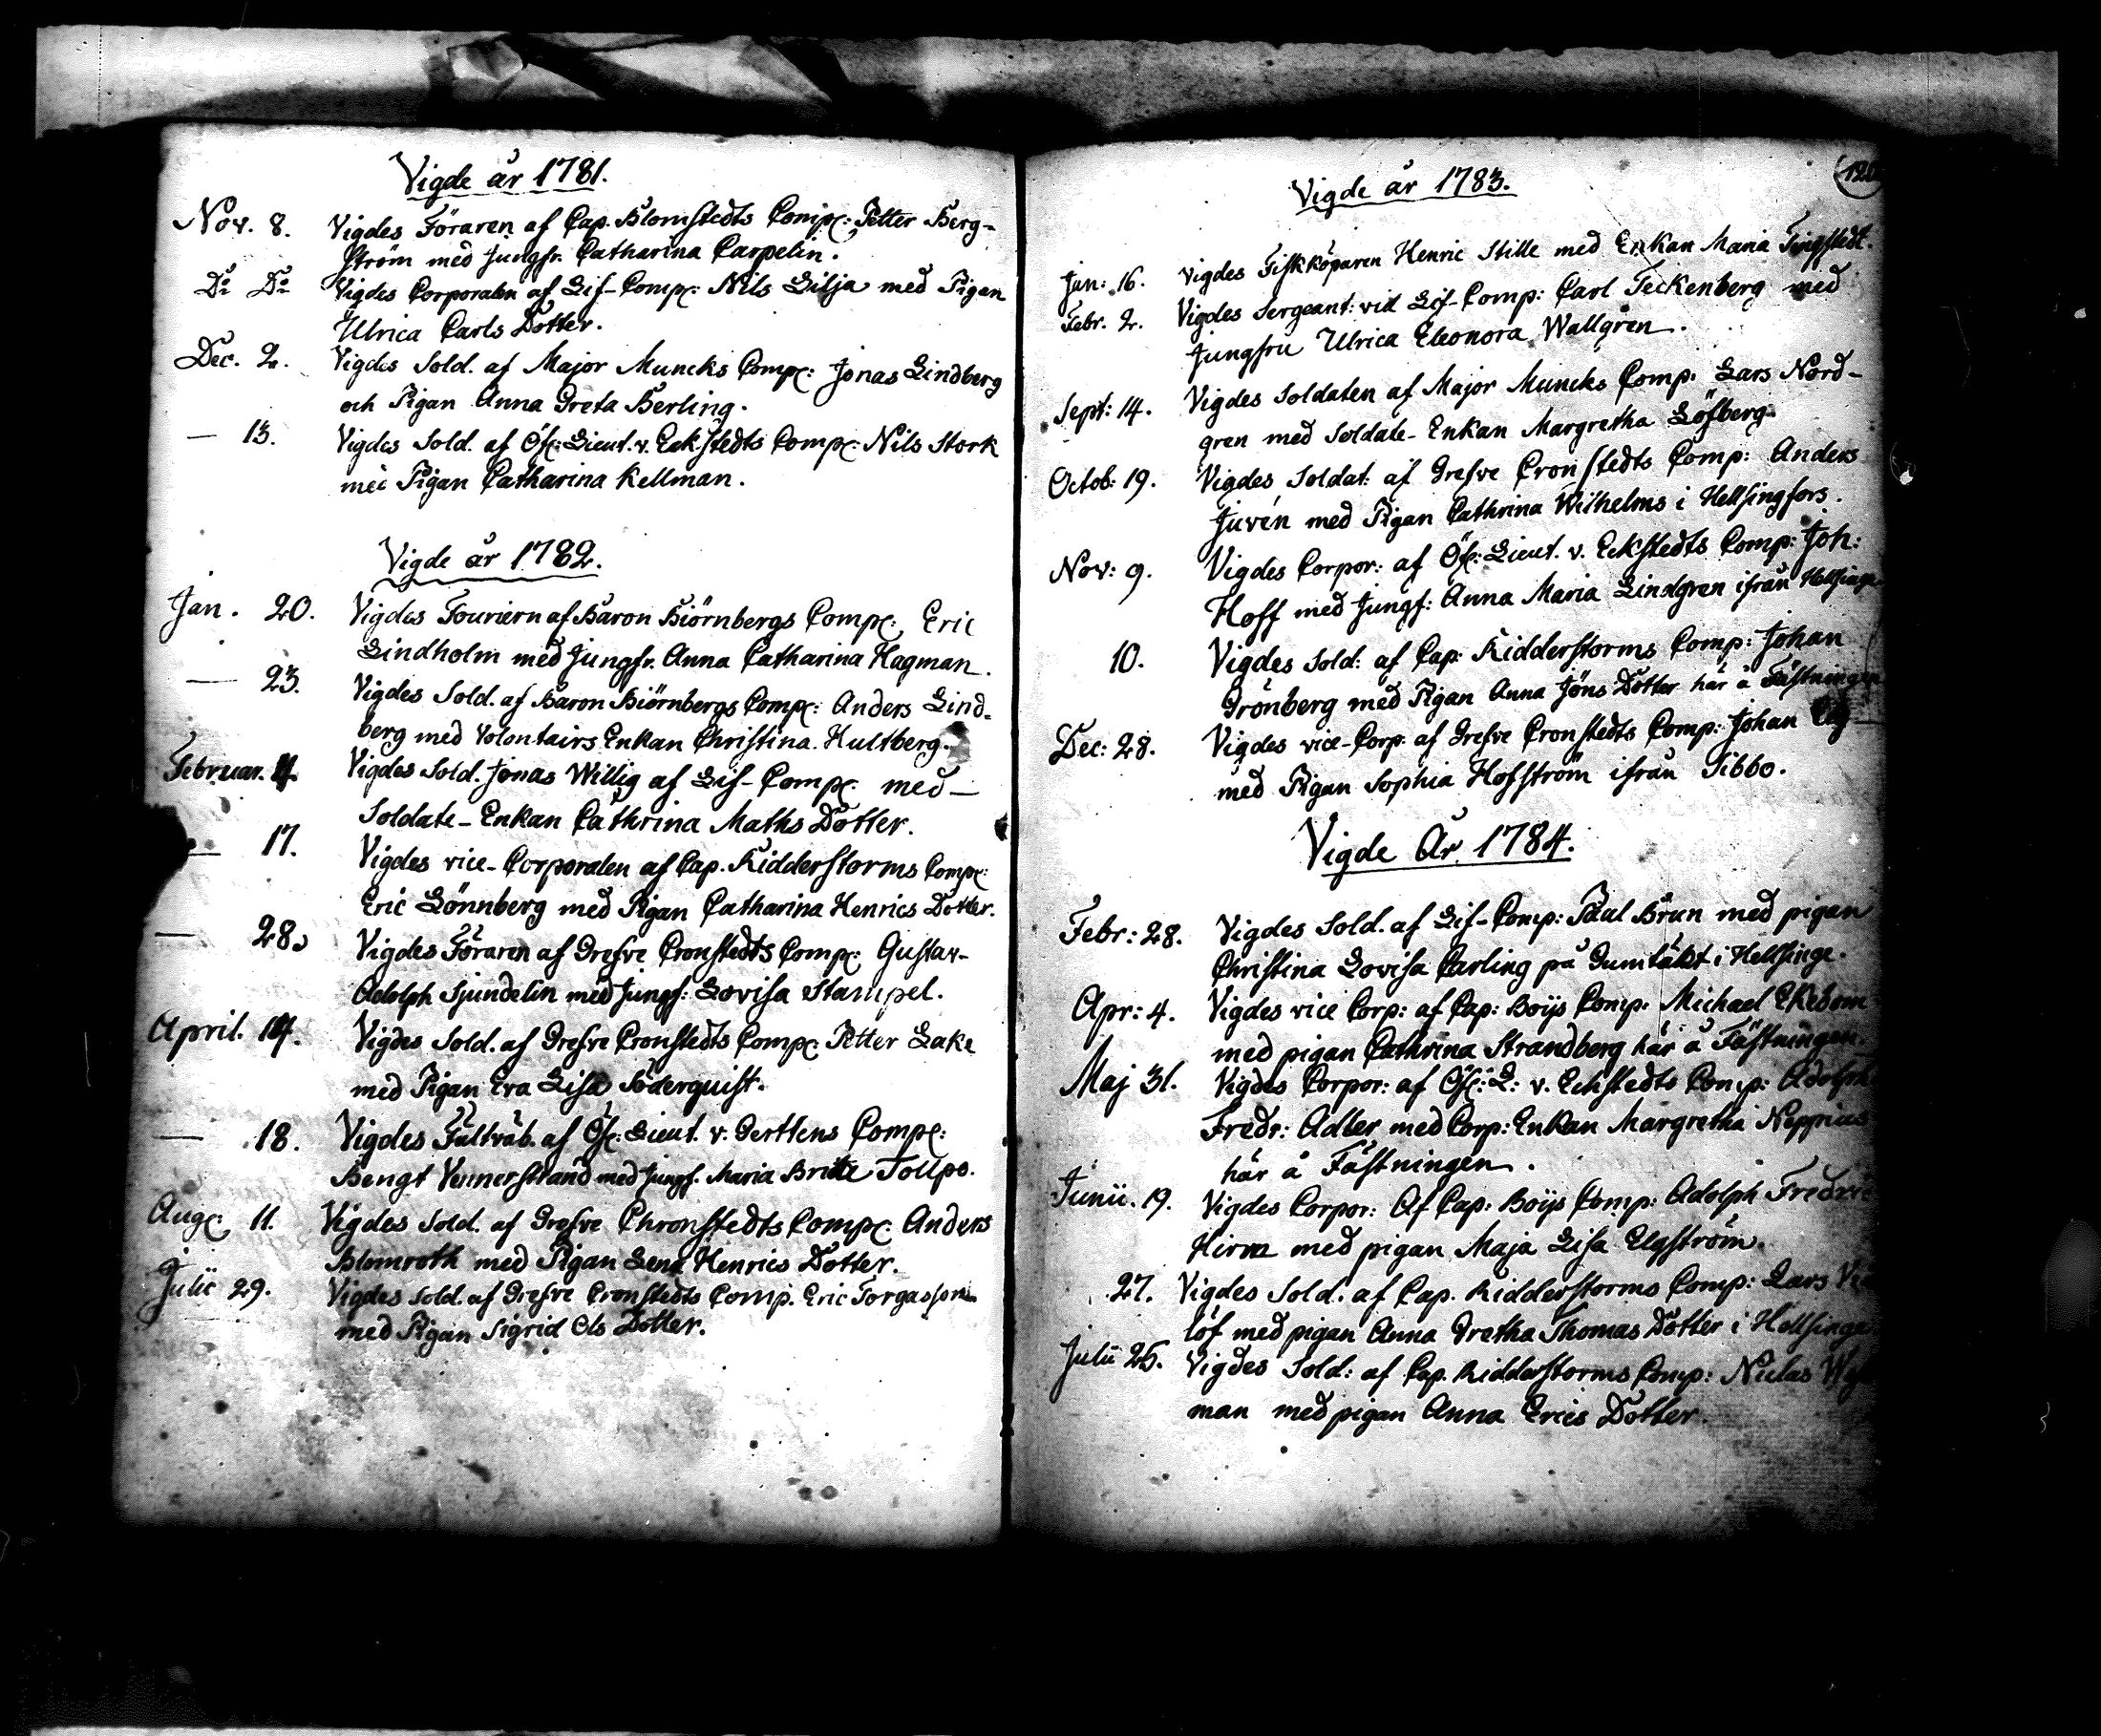 Vigde år 1781.
Nov. 8. Vigdes Föraren af Cap. Blomstedts Comp: Petter Berg-
ström med Jungfr. Catharina Carpelin.
Do Do Vigdes Corporalen af Lif-Comp: Nils Lilja med Pigan
Ulrica Carls Dotter.
Dec. 2. Vigdes Sold. af Major Muncks Comp: Jonas Lindberg
och Pigan Anna Greta Berling.
— 13. Vigdes Sold. af Öf: Lieut. v. Eckstedts Comp: Nils Stork
med Pigan Catharina Kellman.
Vigde år 1782.
Jan. 20. Vigdes Fouriern af Baron Biörnbergs Comp: Eric
Lindholm med Jungfr. Anna Catharina Hagman.
— 23. Vigdes Sold. af Baron Biörnbergs Comp: Anders Lind-
berg med Volontairs Enkan Christina Hultberg.
Februar. Vigdes Sold. Jonas Willig af Lif-Comp: med —
Soldate-Enkan Cathrina Maths Dotter.
— 17. Vigdes vice-Corporalen af Cap. Ridderstorms Comp:
Eric Lönnberg med Pigan Catharina Henrics Dotter.
— 28. Vigdes Föraren af Grefve Cronstedts Comp: Gustav-
Adolph Sjundelin med Jungf: Lovisa Stampel.
April. 14. Vigdes Sold. af Grefve Cronstedts Comp: Petter Lake
med Pigan Eva Lisa Söderquist.
— 18. Vigdes Fältväb. af Öf: Lieut. v. Gerttens Comp:
Bengt Vennerstrand med Jungf. Maria Britte Tollpo.
Aug: 11. Vigdes Sold. af Grefve Chronstedts Comp: Anders
Blomroth med Pigan Lena Henrics Dotter.
Julii 29. Vigdes Sold. af Grefve Cronstedts Comp. Eric Torgasson
med Pigan Sigrid Ols Dotter.
Vigde år 1783.
Jan: 16. Vigdes Fiskköparen Henric Stille med Enkan Maria Tingstedt.
Febr. 2. Vigdes Sergeant: vid Lif-Comp: Carl Teckenberg med
Jungfru Ulrica Eleonora Wallgren.
Sept: 14. Vigdes Soldaten af Major Muncks Comp: Lars Nord-
gren med Soldate-Enkan Margretha Löfberg.
Octob: 19. Vigdes Soldat: af Grefve Cronstedts Comp: Anders
Juvén med Pigan Cathrina Wilhelms i Hellsingfors.
Nov: 9. Vigdes Corpor: af Öf: Lieut. v. Eckstedts Comp: Joh:
Hoff med Jungf: Anna Maria Lindgren ifrån Hellsinge
10. Vigdes Sold: af Cap: Ridderstorms Comp: Johan
Grönberg med Pigan Anna Jöns Dotter här å Fästningen
Dec: 28. Vigdes vice-Corp. af Grefve Cronstedts Comp: Johan
med Pigan Sophia Hofström ifrån Sibbo.
Vigde År 1784.
Febr: 28. Vigdes Sold. af Lif-Comp: Paul Brun med pigan
Christina Lovisa Carling på Gumtäkt i Hellsinge.
Apr: 4. Vigdes vice Corp: af Cap: Boijs Comp: Michael Ekebom
med pigan Cathrina Strandberg här å Fästningen.
Maj 31. Vigdes Corpor: af Öf: L: v. Eckstedts Comp: Adolph
Fredr: Adler med Corp: Enkan Margretha Neppius
här å Fästningen.
Junii. 19. Vigdes Corpor: Af Cap: Boijs Comp: Adolph
Hirn med pigan Maja Lisa Elgström.
27. Vigdes Sold: af Cap. Ridderstorms Comp: Lars
löf med pigan Anna Gretha Thomas Dotter i Hellsinge
Julii 25. Vigdes Sold: af Cap. Ridderstorms Comp: Niclas
man med pigan Anna Erics Dotter.